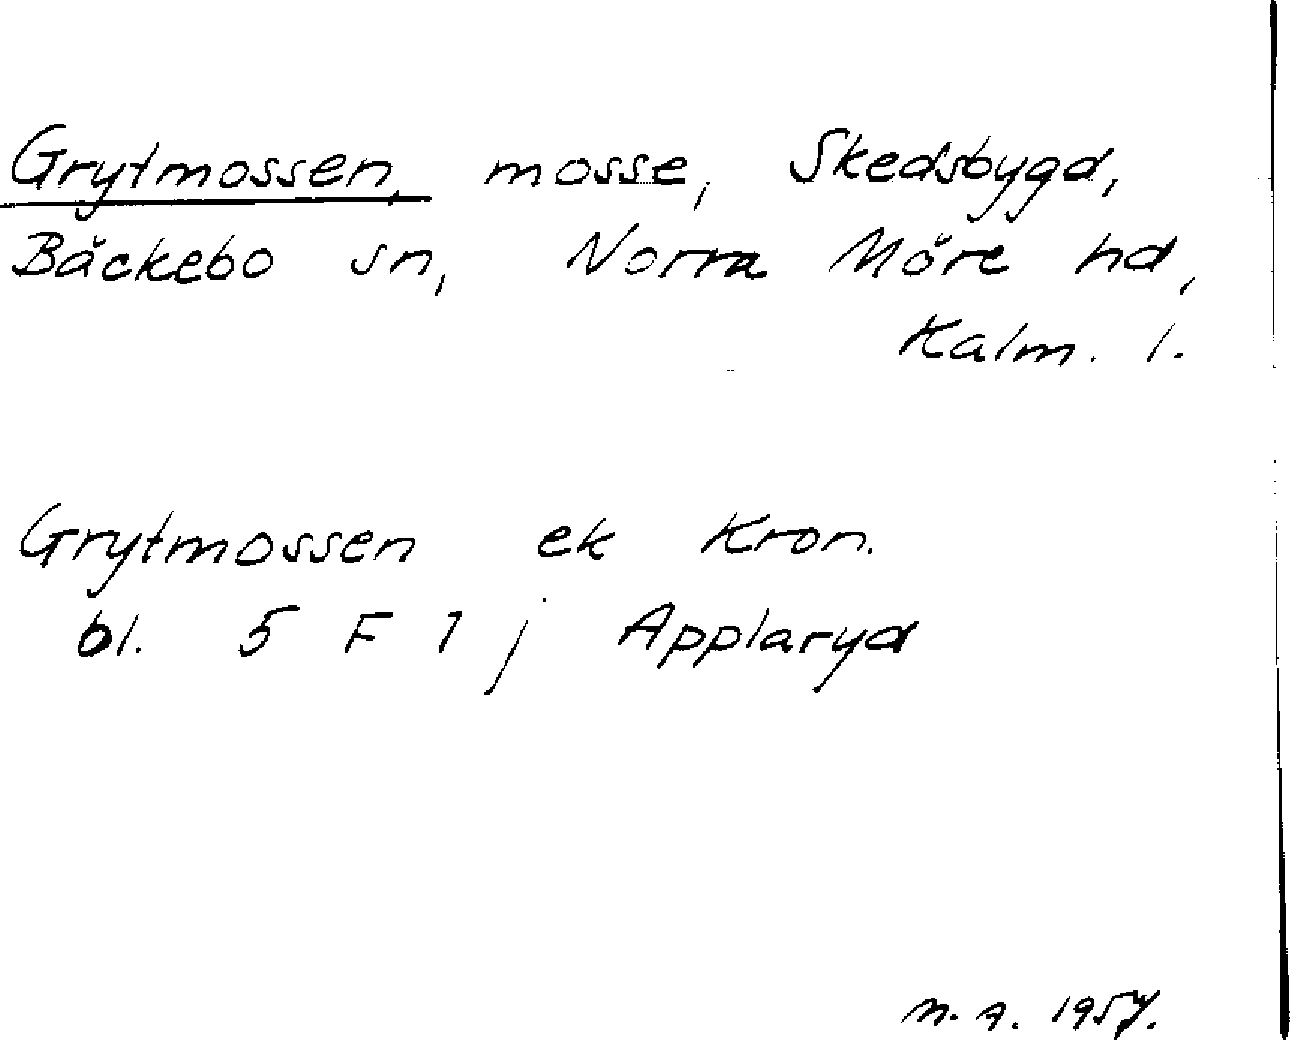 Grytmossen, mosse, Skedsbygd,
Bäckebo sn, Norra Möre hd,
Kalm. l.
Grytmossen ek Kron.
bl. 5 F 1 j Applaryd
M. A. 1957.